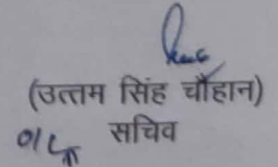 (उत्तम सिंह चौहान)
सचिव